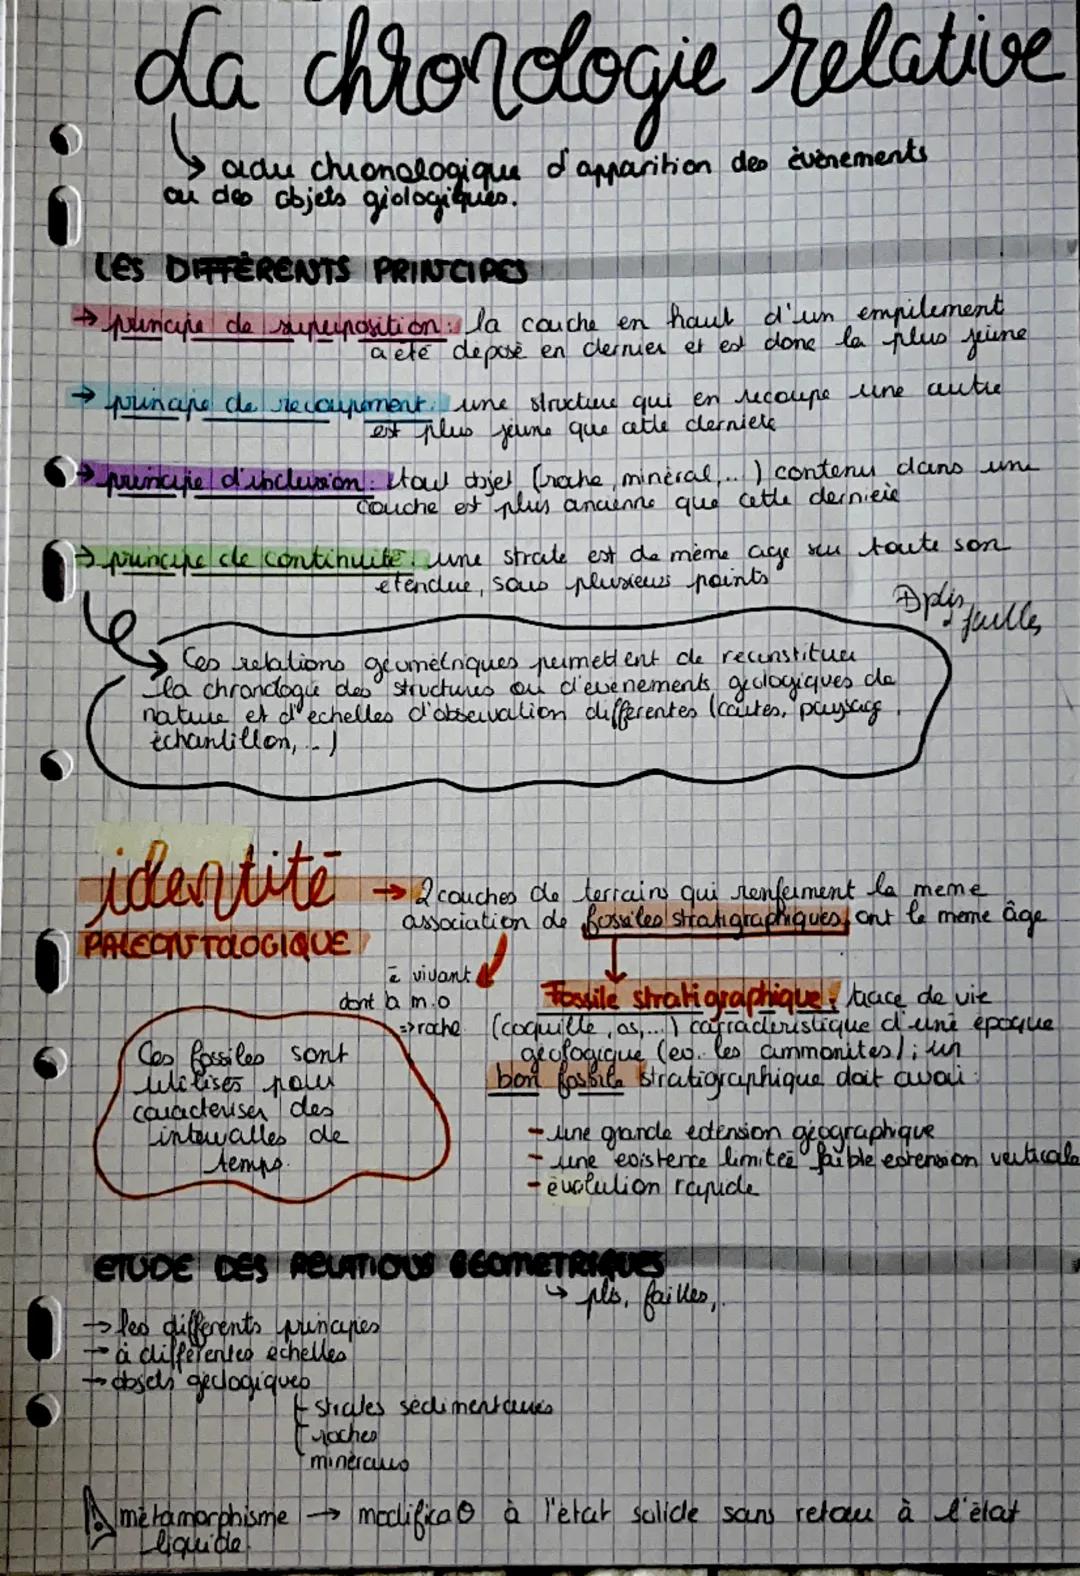 La chronologie relative
↳ ordre chronologique d'apparition des évènements
ou des objets géologiques.
LES DIFFÉRENTS PRINCIPES
→ principe de superposition : la couche en haut d'un empilement
a été déposé en dernier et est donc la plus jeune
→ principe de recoupement : une structure qui en recoupe une autre
est plus jeune que cette dernière
→ principe d'inclusion : tout objet (roche, minéral, ...) contenu dans une
couche est plus ancienne que cette dernière
→ principe de continuité : une strate est de même age sur toute son
étendue, sous plusieurs points
plis,
failles
Ces relations géométriques permettent de reconstituer
la chronologie des structures ou d'évènements géologiques de
nature et d'échelles d'observation différentes (cartes, paysage,
échantillon, ...)
identité
PALEONTOLOGIQUE
→ 2 couches de terrains qui renferment la meme
association de fossiles stratigraphiques, ont le meme âge
ê vivant
dont la m.o
=> roche
Ces fossiles sont
utilisés pour
caracteriser des
intervalles de
temps.
Fossile stratigraphique : trace de vie
(coquille, os, ...) carracteristique d'une époque
géologique (ex. les ammonites) ; un
bon fossile stratigraphique doit avoir :
- une grande extension géographique
- une existence limitée faible extension verticale
- évolution rapide
ETUDE DES RELATIONS GEOMETRIQUES
↳ plis, failles,..
→ les differents principes
→ à différentes échelles
→ objets géologiques
- strates sédimentaires
- roches
minéraux
métamorphisme → modificaθ à l'état solide sans retour à l'état
liquide